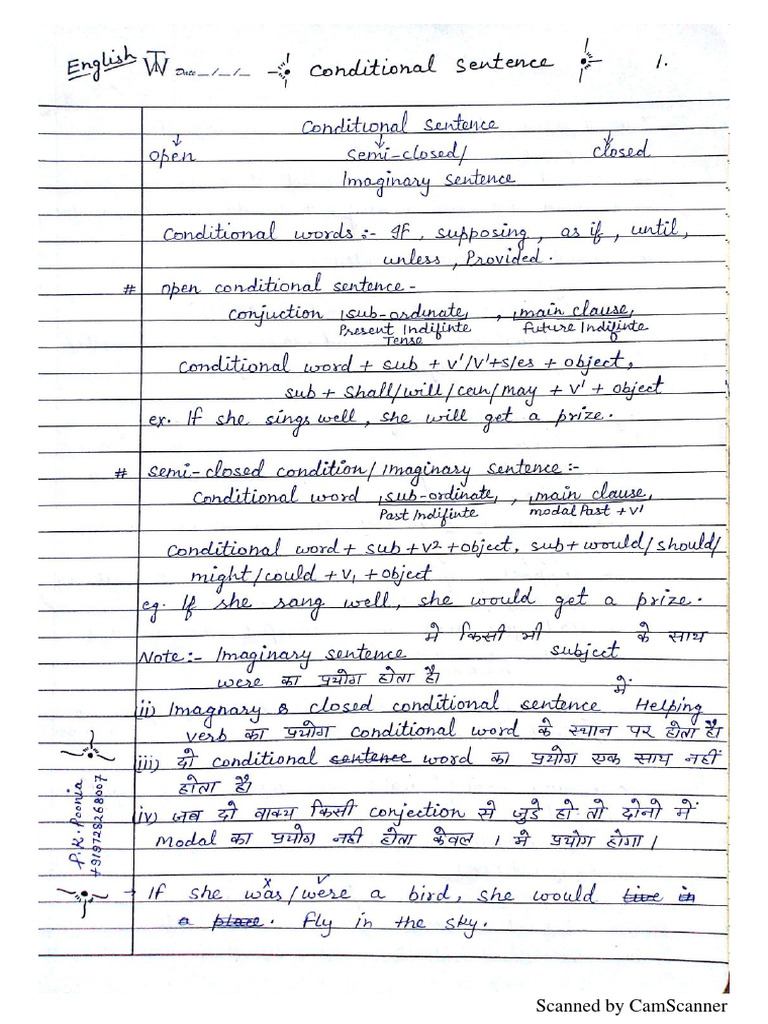 English TW Date _/_/_ Conditional Sentence 1.
Conditional sentence
open semi-closed/ closed
Imaginary sentence
Conditional words:- If, supposing, as if, until,
unless, Provided.
# open conditional sentence -
Conjuction sub-ordinate, main clause,
Present Indifinte Future Indifinte
Tense
Conditional word + sub + v¹/v¹+s/es + object,
sub + shall/will/can/may + v¹ + object
ex. If she sings well, she will get a prize.
# semi-closed condition/Imaginary sentence:-
Conditional word sub-ordinate, main clause,
Past Indifinte modal Past + v¹
Conditional word + sub + v² + object, sub + would/should/
might/could + v₁ + object
eg. If she sang well, she would get a prize.
Note:- Imaginary sentence मे किसी भी subject के साथ
were का प्रयोग होता है।
ii) Imagnary & closed conditional sentence में Helping
verb का प्रयोग conditional word के स्थान पर होता है।
iii) दो conditional sentence word का प्रयोग एक साथ नहीं
होता है।
iv) जब दो वाक्य किसी conjection से जुडे हो तो दोनो में
Modal का प्रयोग नही होता केवल 1 मे प्रयोग होगा।
→ If she was/were a bird, she would live in
a place. fly in the sky.
P.K. Poonia
+919728268007
Scanned by CamScanner